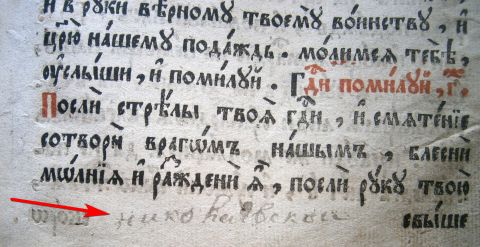 и в руки вѣрному твоему воинству, и҆
цр҃ю нашему пода́ждь . мо́лимсѧ тебѣ̀,
ᲂу҆слы́ши, и҆ поми́лꙋй . Гдⷭ҇и поми́лꙋй, г҃.
Послѝ стрѣ́лы твоѧ̑ гдⷭ҇и, и҆ смѧте́нїе
сотворѝ враго́мъ на́шымъ, блеснѝ
мѡ́лнїѧ и҆ ражденѝ ѧ҆̀, послѝ рꙋ́кꙋ твою̀
николаевской
свы́ше